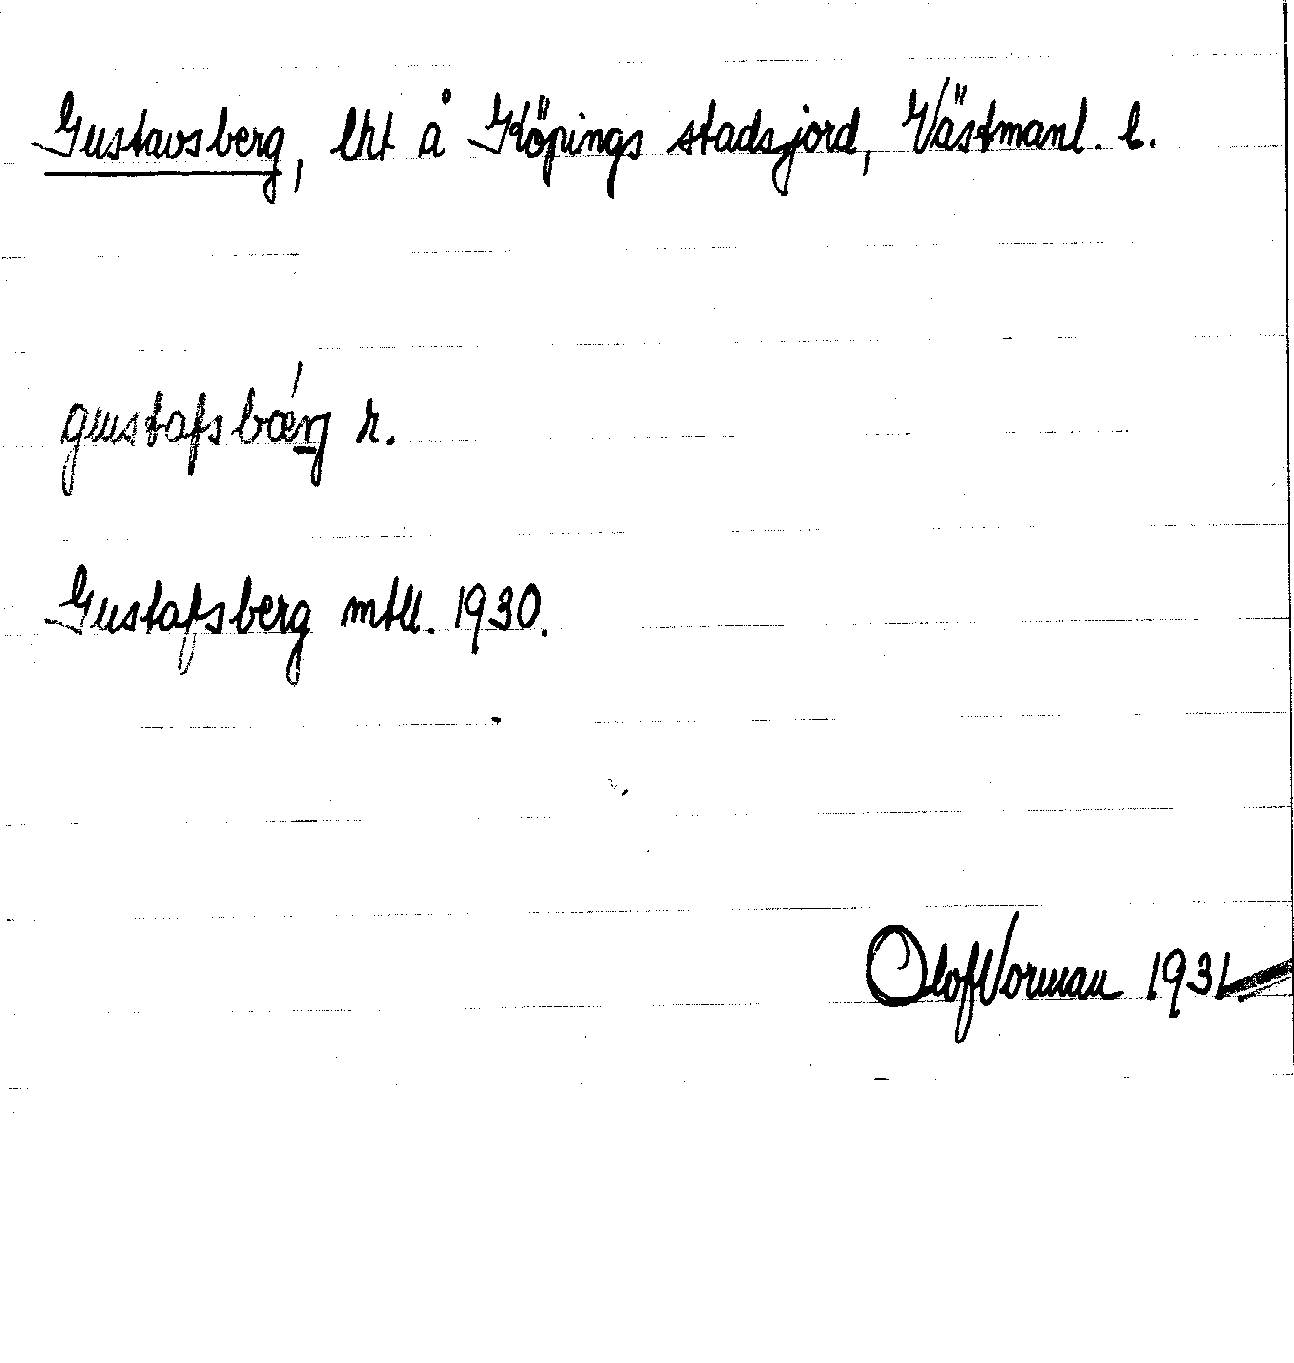 Gustavsberg, lht å Köpings stadsjord, Västmanl. l.
gustafsbærj r.
Gustafsberg mtll. 1930.
Olof Vorman 1931